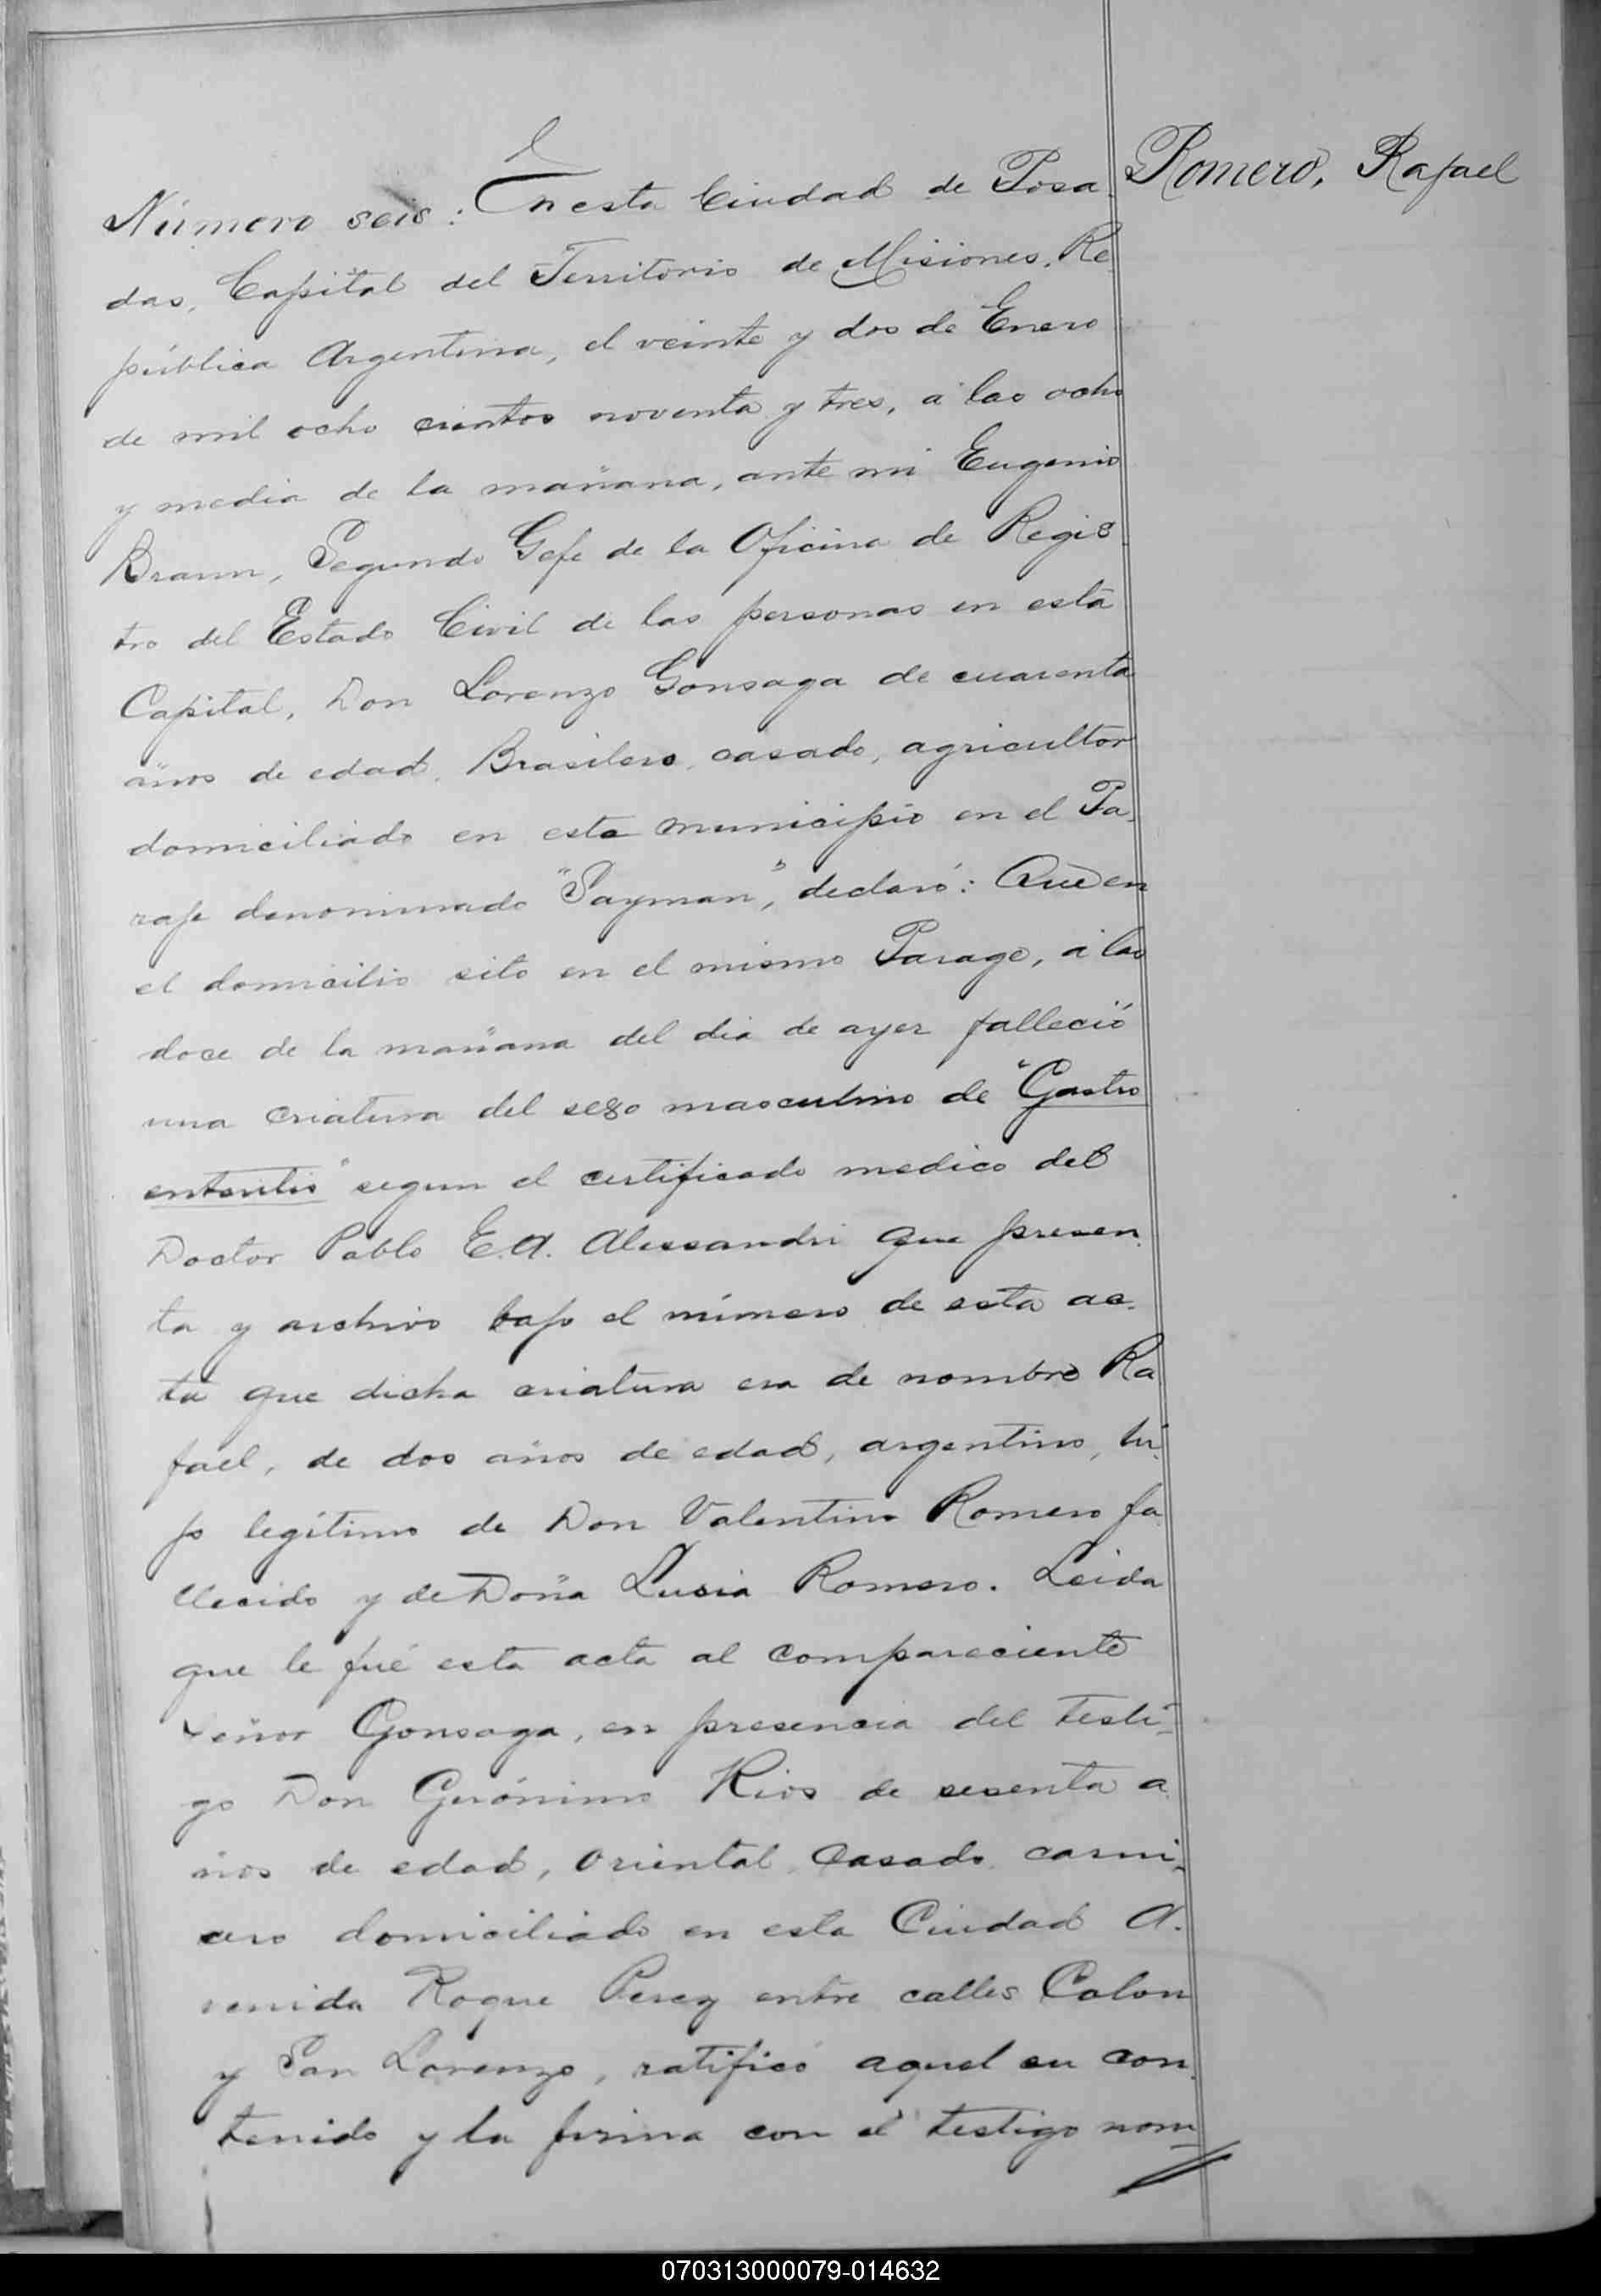 Romero, Rafael
Número seis: En esta Ciudad de Posa
das, Capital del Territorio de Misiones, Re
pública Argentina, el veinte y dos de Enero
de mil ocho cientos noventa y tres, á las ocho
y media de la mañana, ante mi Eugenio
Braun, Segundo Gefe de la Oficina de Regis
tro del Estado Civil de las personas en esta
Capital, Don Lorenzo Gonsaga de cuarenta
años de edad, Brasilero, casado, agricultor
domiciliado en este municipio en el Pa
raje denominado "Sayman", declaró: Que en
el domicilio sito en el mismo Parage, á las
doce de la mañana del dia de ayer falleció
una criatura del sexo masculino de "Gastro
enteritis" segun el certificado medico del
Doctor Pablo E. A. Alessandri que presen
ta y archivo bajo el número de esta ac
ta que dicha criatura era de nombre Ra
fael, de dos años de edad, argentino, hi
jo legítimo de Don Valentino Romero fa
llecido y de Doña Lusia Romero. Leida
que le fué esta acta al compareciente
Señor Gonsaga, en presencia del testi-
go Don Gerónimo Rios de sesenta a
ños de edad, Oriental, Casado, carni-
cero domiciliado en esta Ciudad A.
venida Roque Perez entre calles Colon
y San Lorenzo, ratificó aquel su con
tenido y la firma con el testigo nom
070313000079-014632